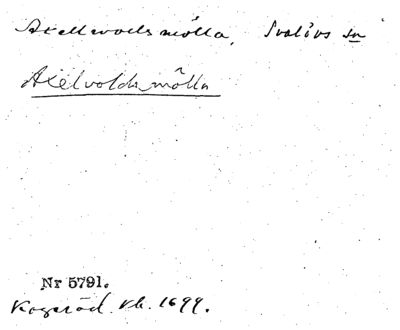 Axellwolds mölla, Svalövs sn
Axelvolds mölla
Nr 5791.
Kageröd. kb. 1699.